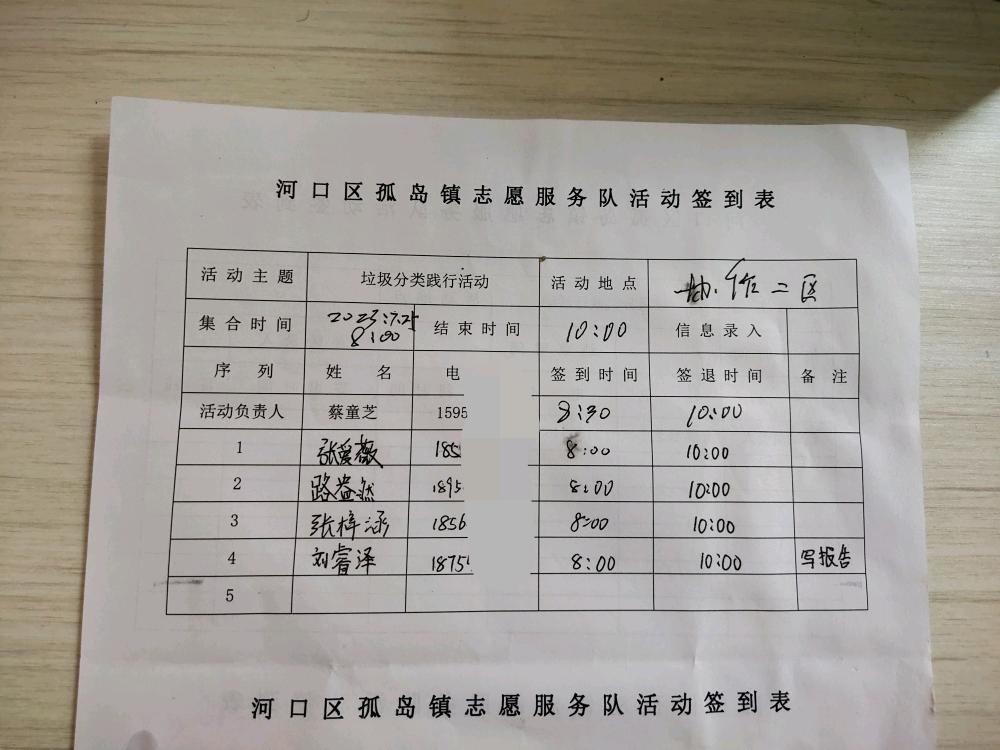 河口区孤岛镇志愿服务队活动签到表
活动主题 垃圾分类践行活动 活动地点 协作二区
集合时间 2023.7.25 8:00 结束时间 10:00 信息录入
序列 姓名 电 签到时间 签退时间 备注
活动负责人 蔡童芝 1595 8:30 10:00
1 张爱薇 185 8:00 10:00
2 路益然 1895 8:00 10:00
3 张梓涵 1856 8:00 10:00
4 刘睿泽 1875 8:00 10:00 写报告
5
河口区孤岛镇志愿服务队活动签到表